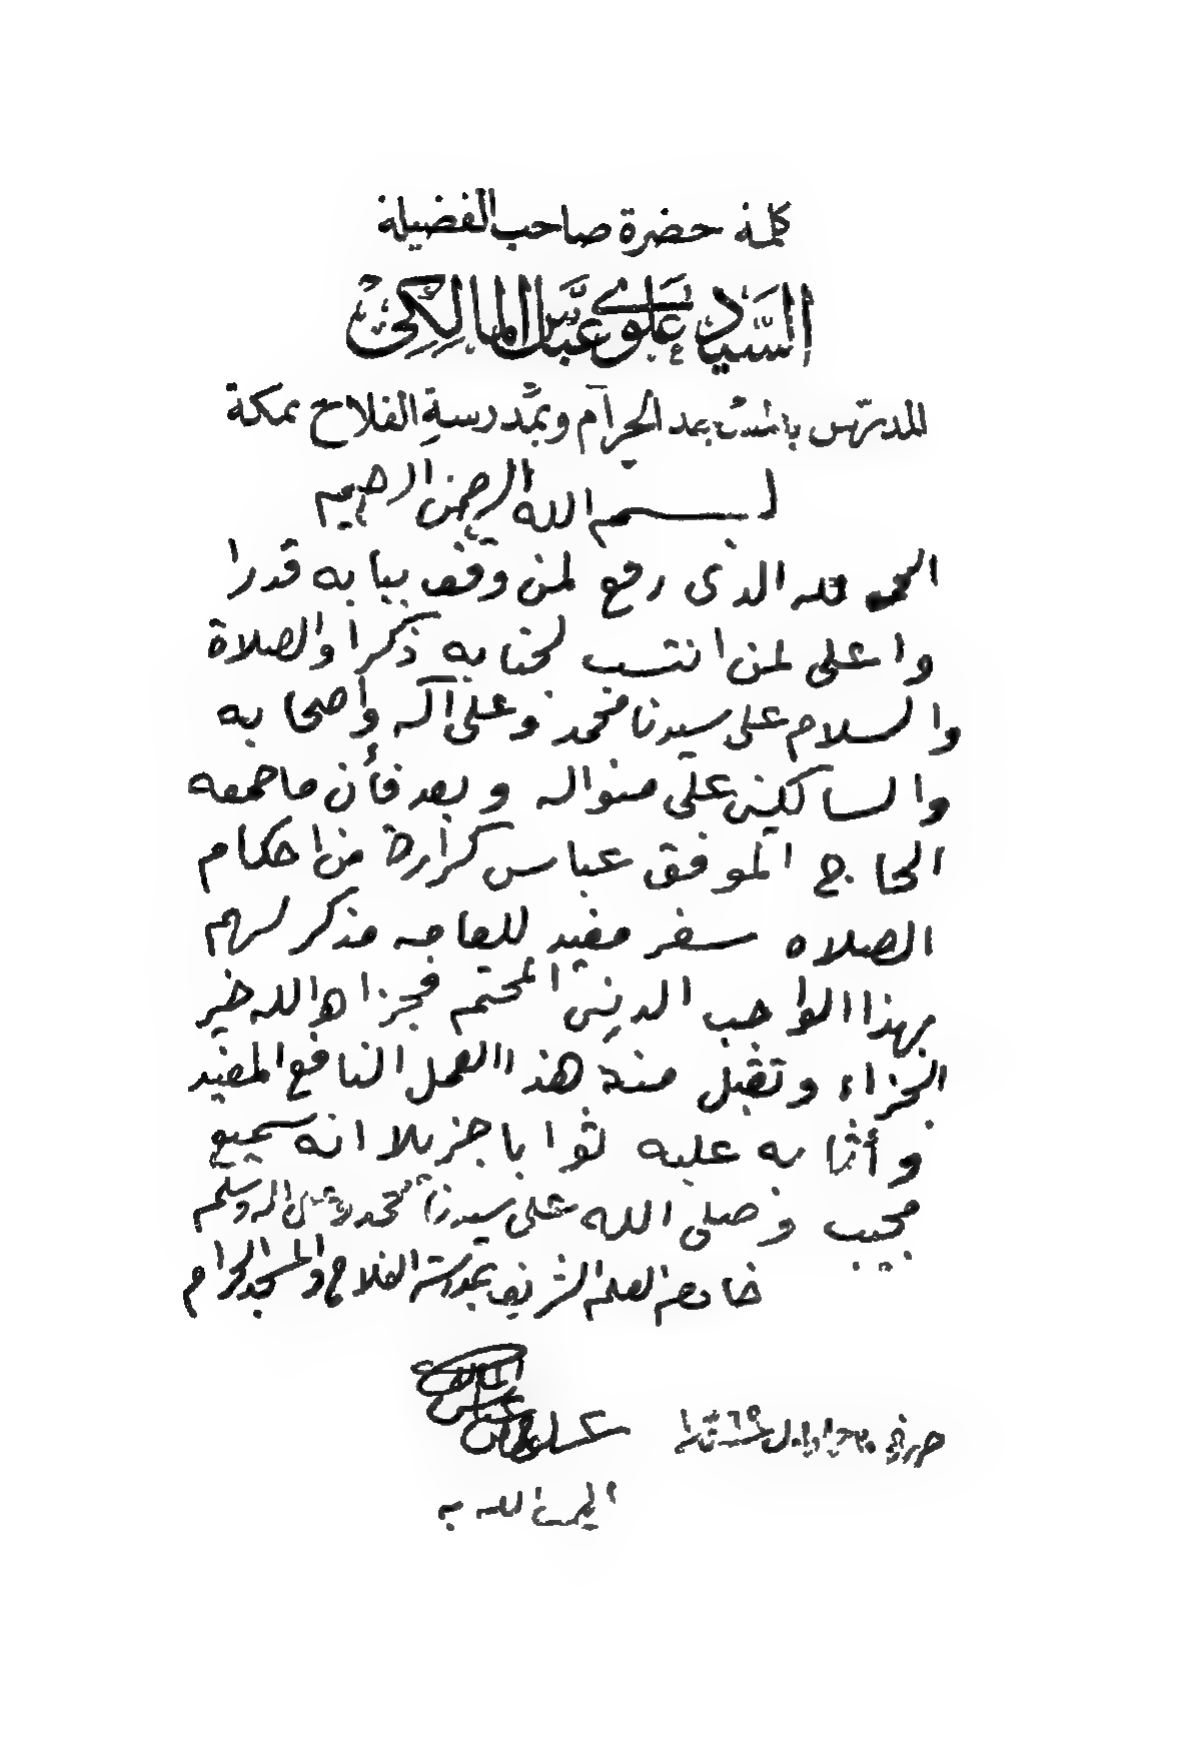 كلمة حضرة صاحب الفضيلة
السيد علوي عباس المالكي
المدرس بالمسجد الحرام وبمدرسة الفلاح بمكة
بسم الله الرحمن الرحيم
الحمد لله الذى رفع لمن وقف ببابه قدرا
واعلى لمن انتسب لجنابه ذكرا والصلاة
والسلام على سيدنا محمد وعلى آله واصحابه
والسالكين على منواله وبعد فأن ماجمعه
الحاج الموفق عباس كرارة من احكام
الصلاه سفر مفيد للعامه مذكر لهم
بهذا الواجب الدينى المحتم فجزاه الله خير
الجزاء وتقبل منه هذا العمل النافع المفيد
وأثابه عليه ثوابا جزيلا انه سميع
مجيب وصلى الله على سيدنا محمد وعلى اله وسلم
خادم العلم الشريف بمدرسة الفلاح والمسجد الحرام
علوي عباس المالكي